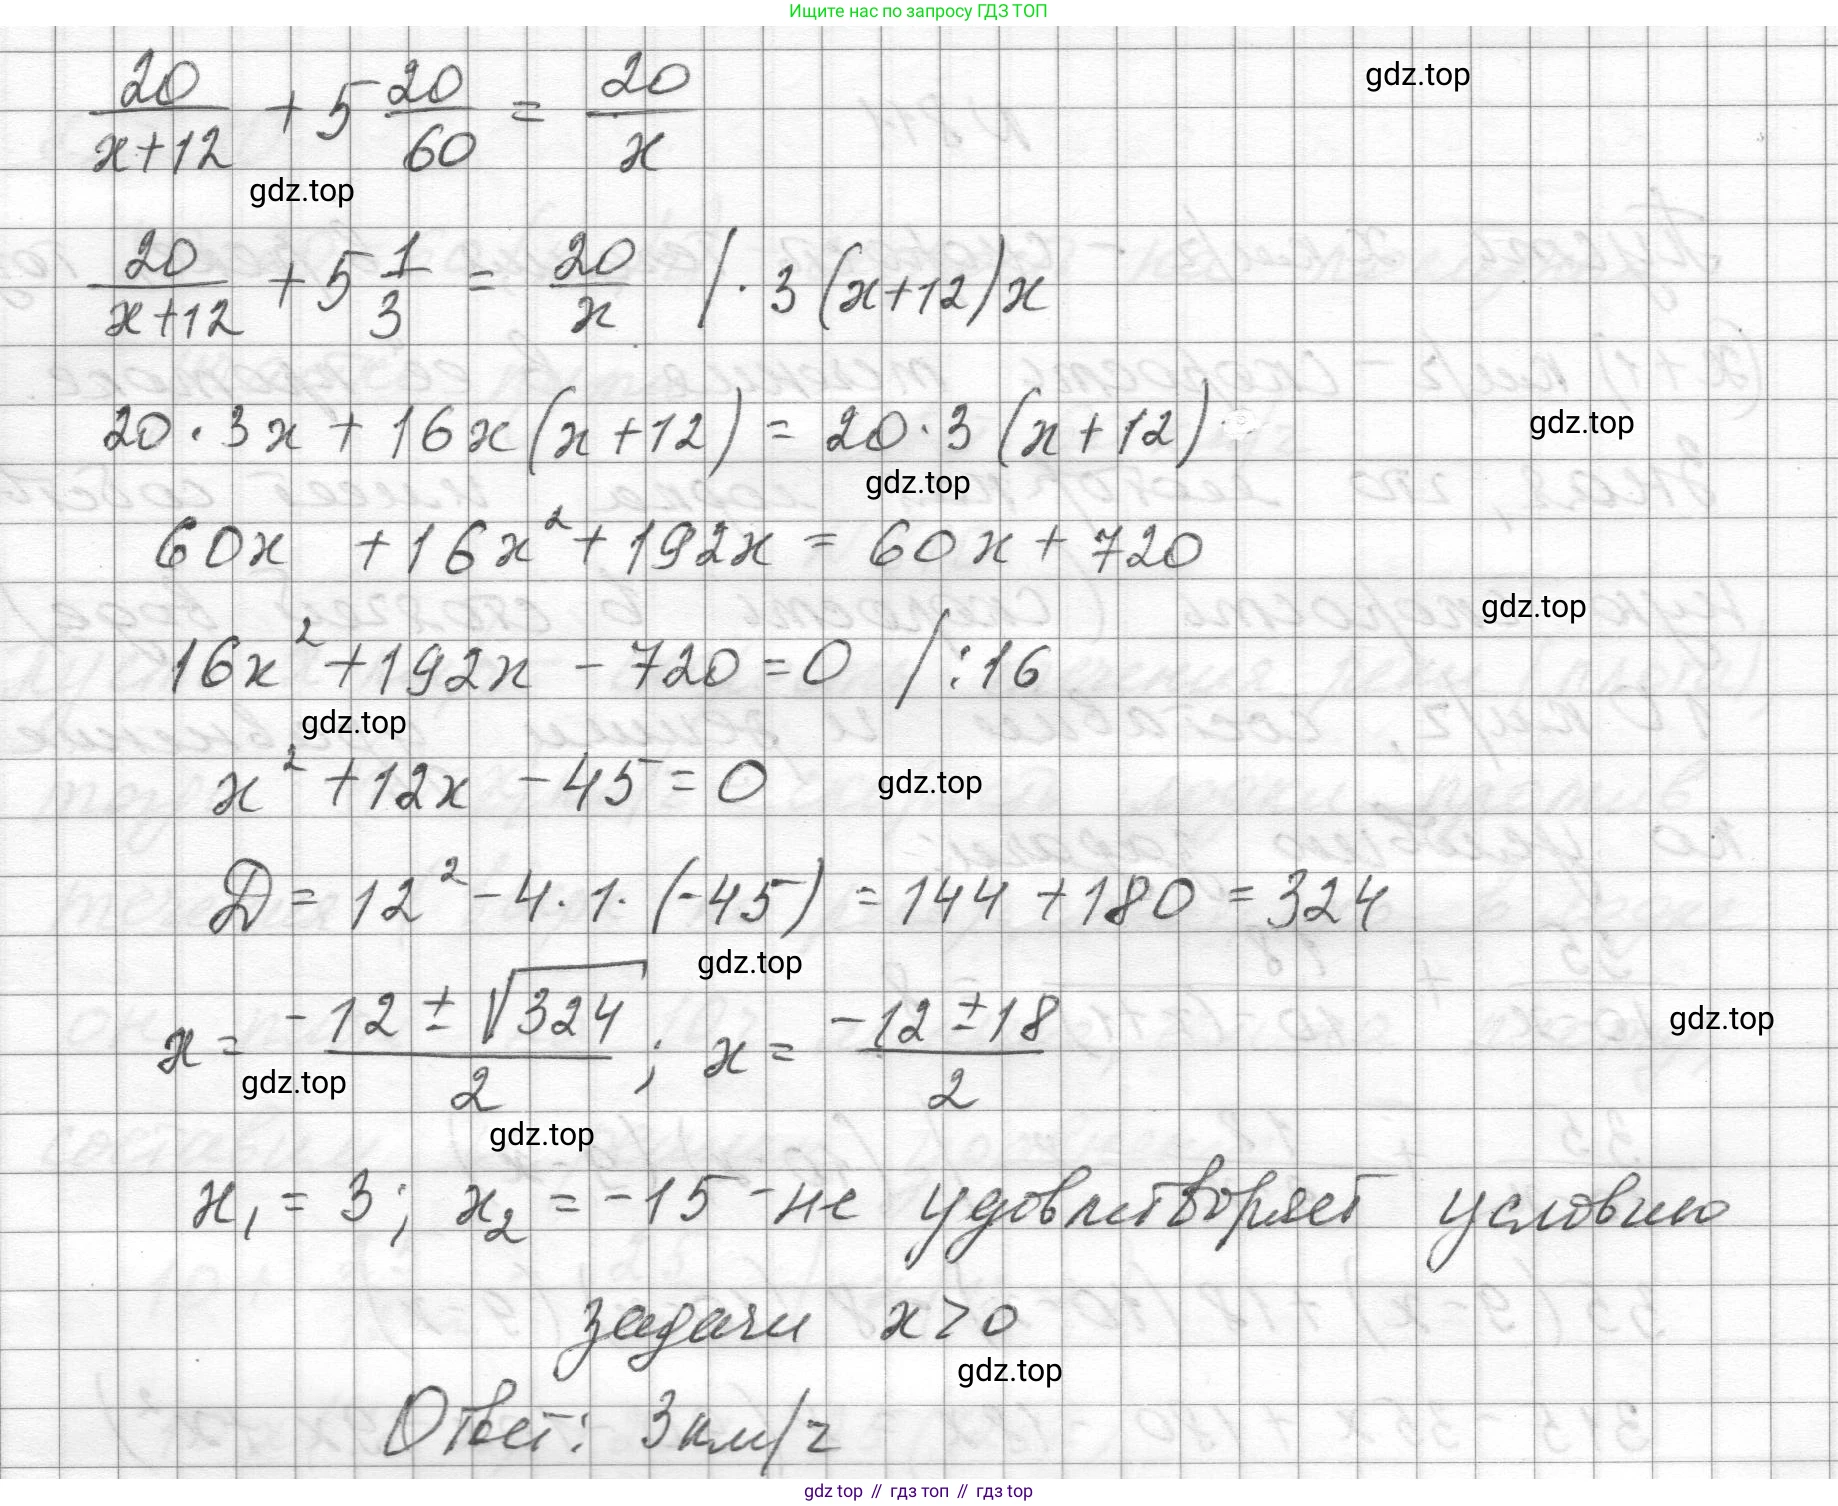 Ищите нас по запросу ГДЗ ТОП
20/(x+12) + 5 20/60 = 20/x
gdz.top
gdz.top
20/(x+12) + 5 1/3 = 20/x / · 3(x+12)x
20 · 3x + 16x(x+12) = 20 · 3(x+12)
gdz.top
gdz.top
60x + 16x² + 192x = 60x + 720
gdz.top
16x² + 192x - 720 = 0 / :16
gdz.top
x² + 12x - 45 = 0
gdz.top
Д = 12² - 4 · 1 · (-45) = 144 + 180 = 324
gdz.top
x = (-12 ± √324)/2 ; x = (-12 ± 18)/2
gdz.top
gdz.top
gdz.top
x₁ = 3; x₂ = -15 - не удовлетворяет условию
задачи x > 0
gdz.top
Ответ: 3 км/ч
gdz top // гдз топ // gdz top